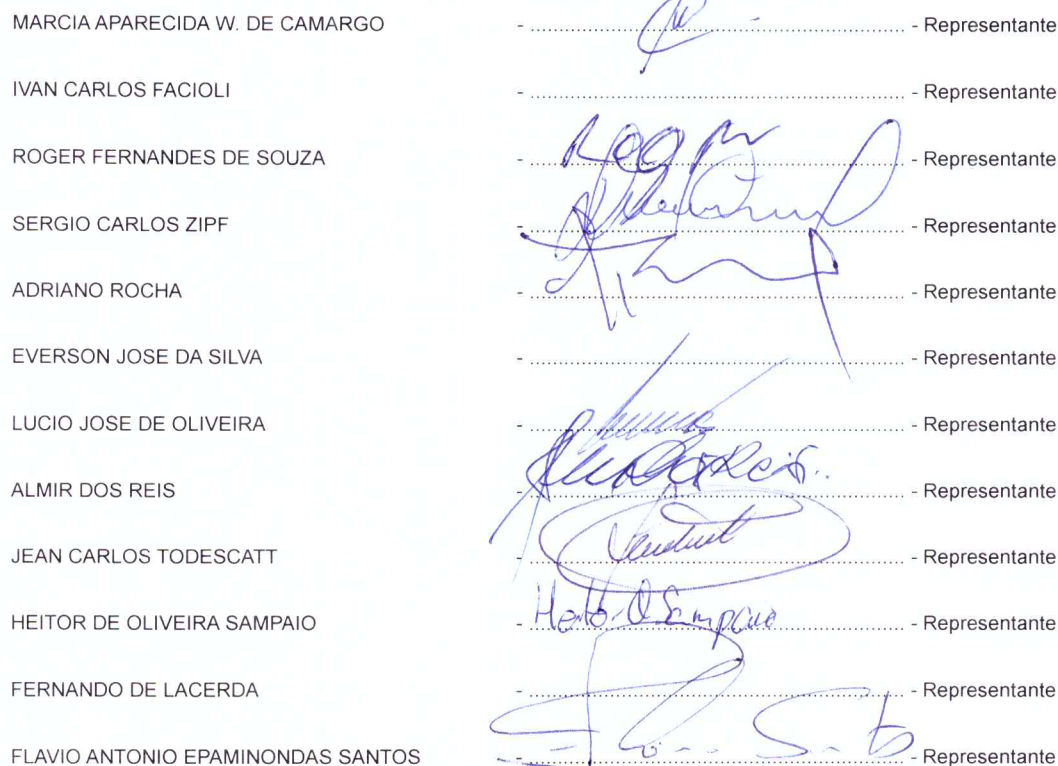 MARCIA APARECIDA W. DE CAMARGO - ........................................ - Representante
IVAN CARLOS FACIOLI - ........................................ - Representante
ROGER FERNANDES DE SOUZA - ........................................ - Representante
SERGIO CARLOS ZIPF - ........................................ - Representante
ADRIANO ROCHA - ........................................ - Representante
EVERSON JOSE DA SILVA - ........................................ - Representante
LUCIO JOSE DE OLIVEIRA - ........................................ - Representante
ALMIR DOS REIS - ........................................ - Representante
JEAN CARLOS TODESCATT - ........................................ - Representante
HEITOR DE OLIVEIRA SAMPAIO - Heitor O Sampaio - Representante
FERNANDO DE LACERDA - ........................................ - Representante
FLAVIO ANTONIO EPAMINONDAS SANTOS - ........................................ - Representante